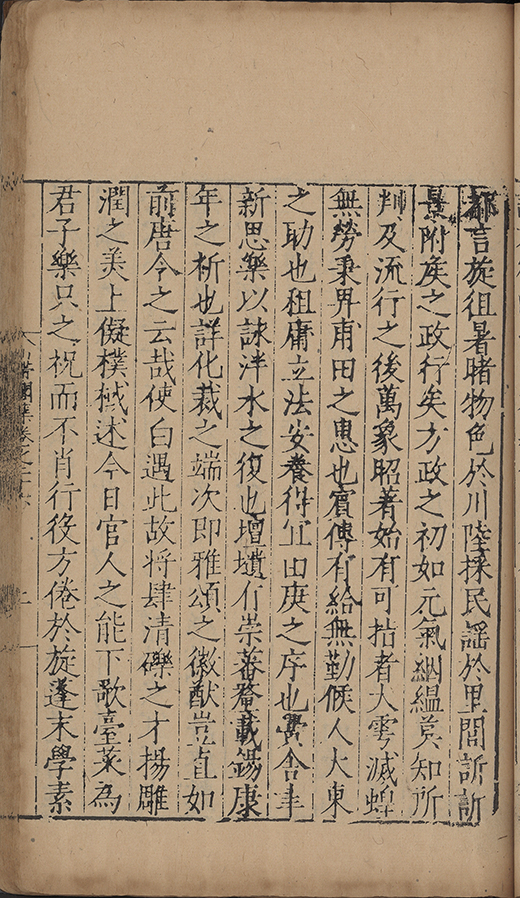 都言旋徂暑睹物色於川陸採民謡於里閭訢訢
景附矦之政行矣方政之初如元氣絪緼莫知所
判及流行之後萬象昭著始有可拈者大雩滅蝗
無勞秉畀甫田之惠也賓傅有給無勤候人大東
之助也租庸立法安養得宜由庚之序也黌舍丰
新思樂以詠泮水之復也壇壝仃崇蕃釐載錫康
年之祈也詳化裁之端次即雅頌之徽猷豈直如
前唐令之云哉使白遇此故将肆清礫之才揚雕
潤之美上儗樸棫述今日官人之能下歌臺萊為
君子樂只之祝而不肖行役方倦於旋蓬末學素
集卷之二十六
上